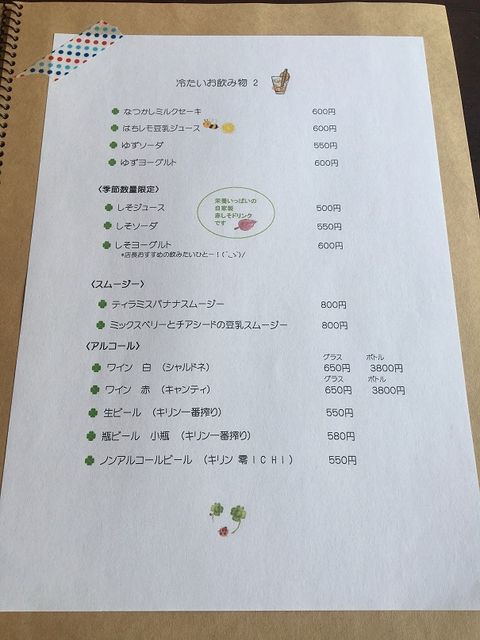 冷たいお飲み物 2
なつかしミルクセーキ 600円
はちレモ豆乳ジュース 600円
ゆずソーダ 550円
ゆずヨーグルト 600円
〈季節数量限定〉
栄養いっぱいの
自家製
赤しそドリンク
です
しそジュース 500円
しそソーダ 550円
しそヨーグルト 600円
*店長おすすめの飲みたいひと―!(^◡^)/
〈スムージー〉
ティラミスバナナスムージー 800円
ミックスベリーとチアシードの豆乳スムージー 800円
〈アルコール〉
グラス ボトル
ワイン 白 (シャルドネ) 650円 3800円
グラス ボトル
ワイン 赤 (キャンティ) 650円 3800円
生ビール (キリン一番搾り) 550円
瓶ビール 小瓶 (キリン一番搾り) 580円
ノンアルコールビール (キリン 零ICHI) 550円